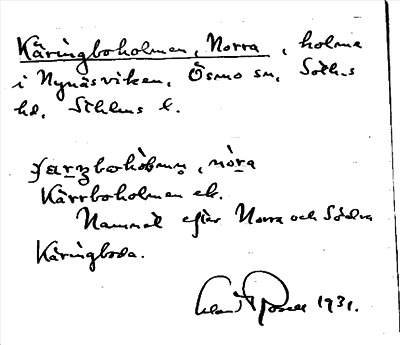 Käringboholmen, Norra, holme
i Nynäsviken, Ösmo sn, Soth.s
hd, Sthlms l.
Kärrboholmen ek.
Namnet efter Norra och Södra
Käringboda.
1931.